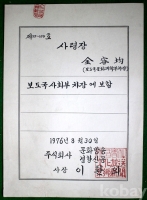 사령장
金容均
보도국사회부 차장 에 보함
1976년 8월 30일
주식회사 문화방송
경향신문
사장 이환의
kobay